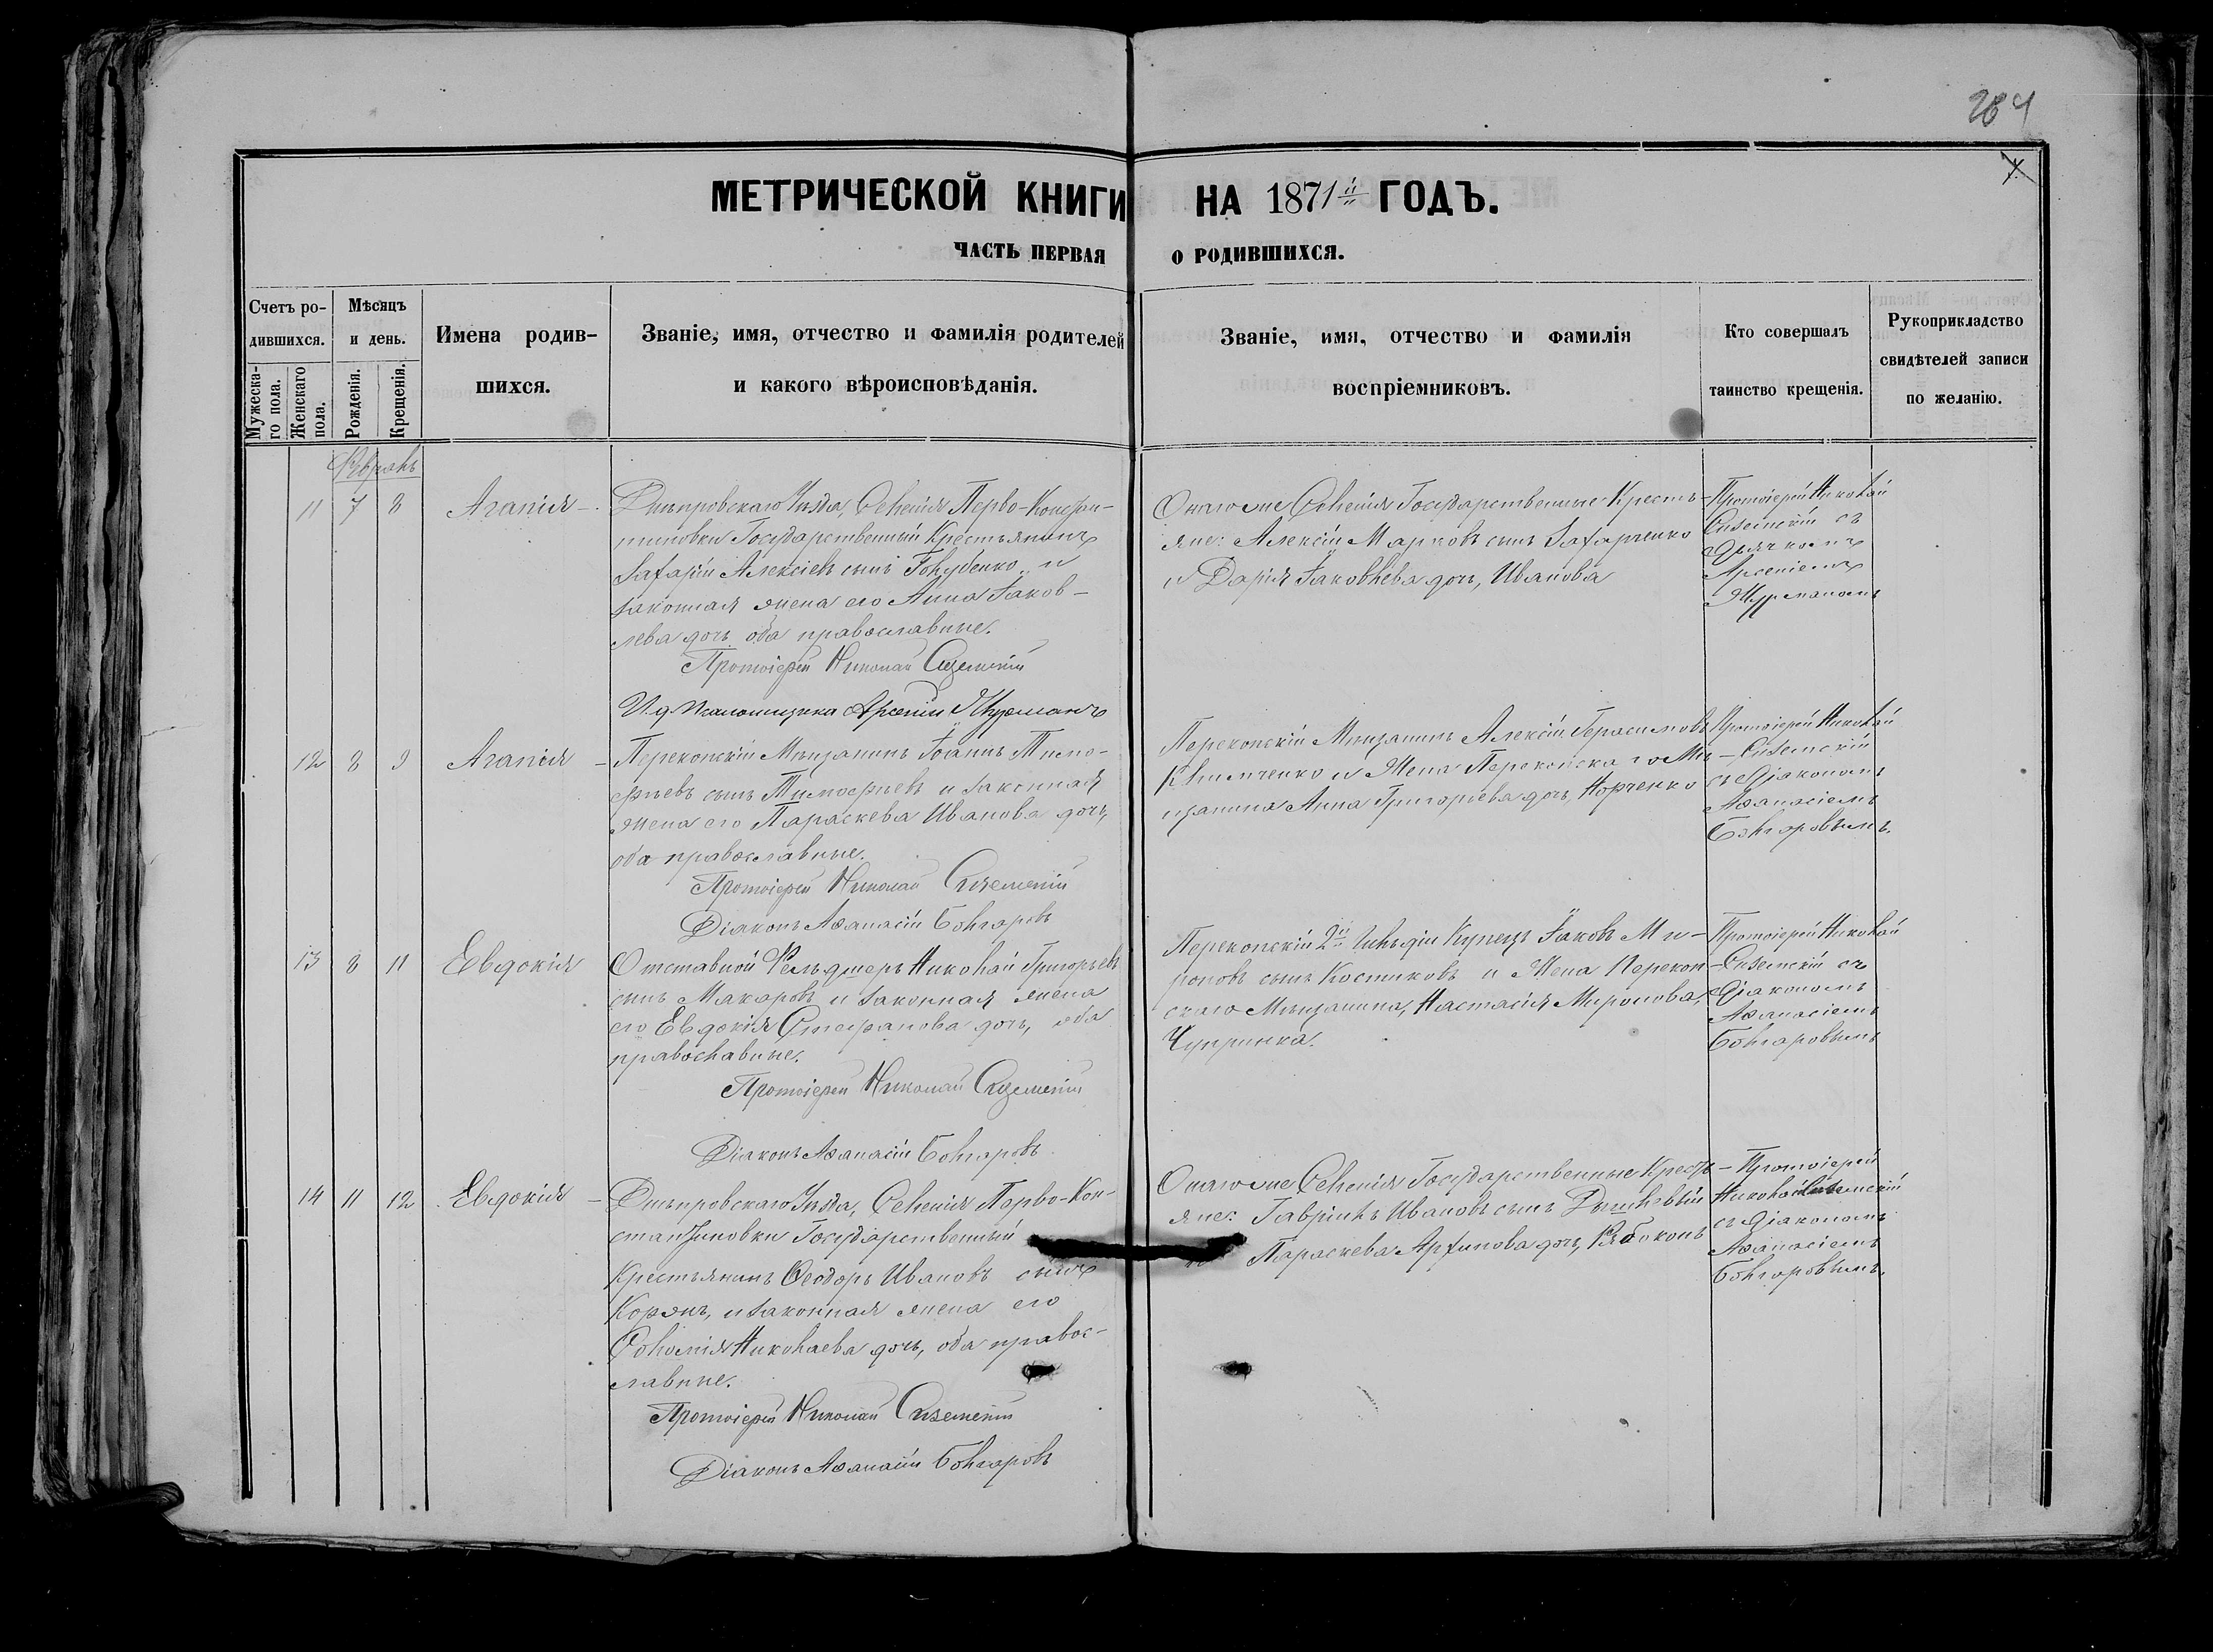 264
МЕТРИЧЕСКОЙ КНИГИ НА 1871й ГОДЪ.
ЧАСТЬ ПЕРВАЯ О РОДИВШИХСЯ.
Счетъ ро-
дившихся.
Мужеска-
го пола.
Женскаго
пола.
Мѣсяцъ
и день.
Рожденія.
Крещенія.
Имена родив-
шихся.
Званіе, имя, отчество и фамилія родителей
и какого вѣроисповѣданія.
Званіе, имя, отчество и фамилія
воспріемниковъ.
Кто совершалъ
таинство крещенія.
Рукоприкладство
свидѣтелей записи
по желанію.
Февраль
11 7 8 Агапія
Днѣпровскаго Уѣзда, Селенія Перво-Констан-
тиновки Государственный Крестьянинъ
Захарій Алексіевъ сынъ Голубенко и
законная жена его Анна Іаков-
лева дочь оба православные.
Протоіерей Николай Сиземскій
И. д. Псаломщика Арсеній Журманъ
Онаго же Селенія Государственные Кресть-
яне: Алексій Марковъ сынъ Захарченко
и Дарія Іаковлева дочь, Иванова
Протоіерей Николай
Сиземскій съ
Дьячкомъ
Арсеніемъ
Журманомъ
12 8 9 Агапія
Перекопскій Мѣщанинъ Іоаннъ Тимо-
фѣевъ сынъ Тимофѣевъ и законная
жена его Параскева Иванова дочь,
оба православные.
Протоіерей Николай Сиземскій
Діаконъ Аѳанасій Болгаровъ
Перекопскій Мѣщанинъ Алексій Герасимовъ
Климченко и Жена Перекопскаго Мѣ-
щанина Анна Григорьева дочь, Норченко
Протоіерей Николай
Сиземскій
съ Діакономъ
Аѳанасіемъ
Болгаровымъ.
13 8 11 Евдокія
Отставной Фельдшеръ Николай Григорьевъ
сынъ Макаровъ и законная жена
его Евдокія Стефанова дочь, оба
православные.
Протоіерей Николай Сиземскій
Діаконъ Аѳанасій Болгаровъ
Перекопскій 2й Гильдіи Купецъ Іаковъ Ми-
роновъ сынъ Костиковъ и Жена Перекоп-
скаго Мѣщанина, Настасія Миронова,
Чупринка.
Протоіерей Николай
Сиземскій съ
Діакономъ
Аѳанасіемъ
Болгаровымъ
14 11 12 Евдокія
Днѣпровскаго Уѣзда, Селенія Перво-Кон-
стантиновки Государственный
Крестьянинъ Ѳеодоръ Ивановъ сынъ
Корэнь, и законная жена его
Соломія Николаева дочь, оба правос-
лавные.
Протоіерей Николай Сиземскій
Діаконъ Аѳанасій Болгаровъ
Онаго же Селенія Государственные Кресть-
яне: Гавріилъ Ивановъ сынъ Дышлевый
Параскева Архипова дочь, Рябоконь
Протоіерей
Николай Сиземскій
съ Діакономъ
Аѳанасіемъ
Болгаровымъ.